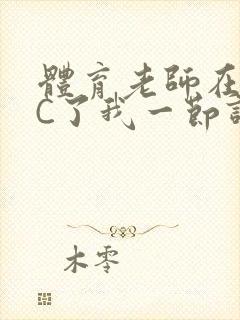 體育老師在
C了我一節
木零